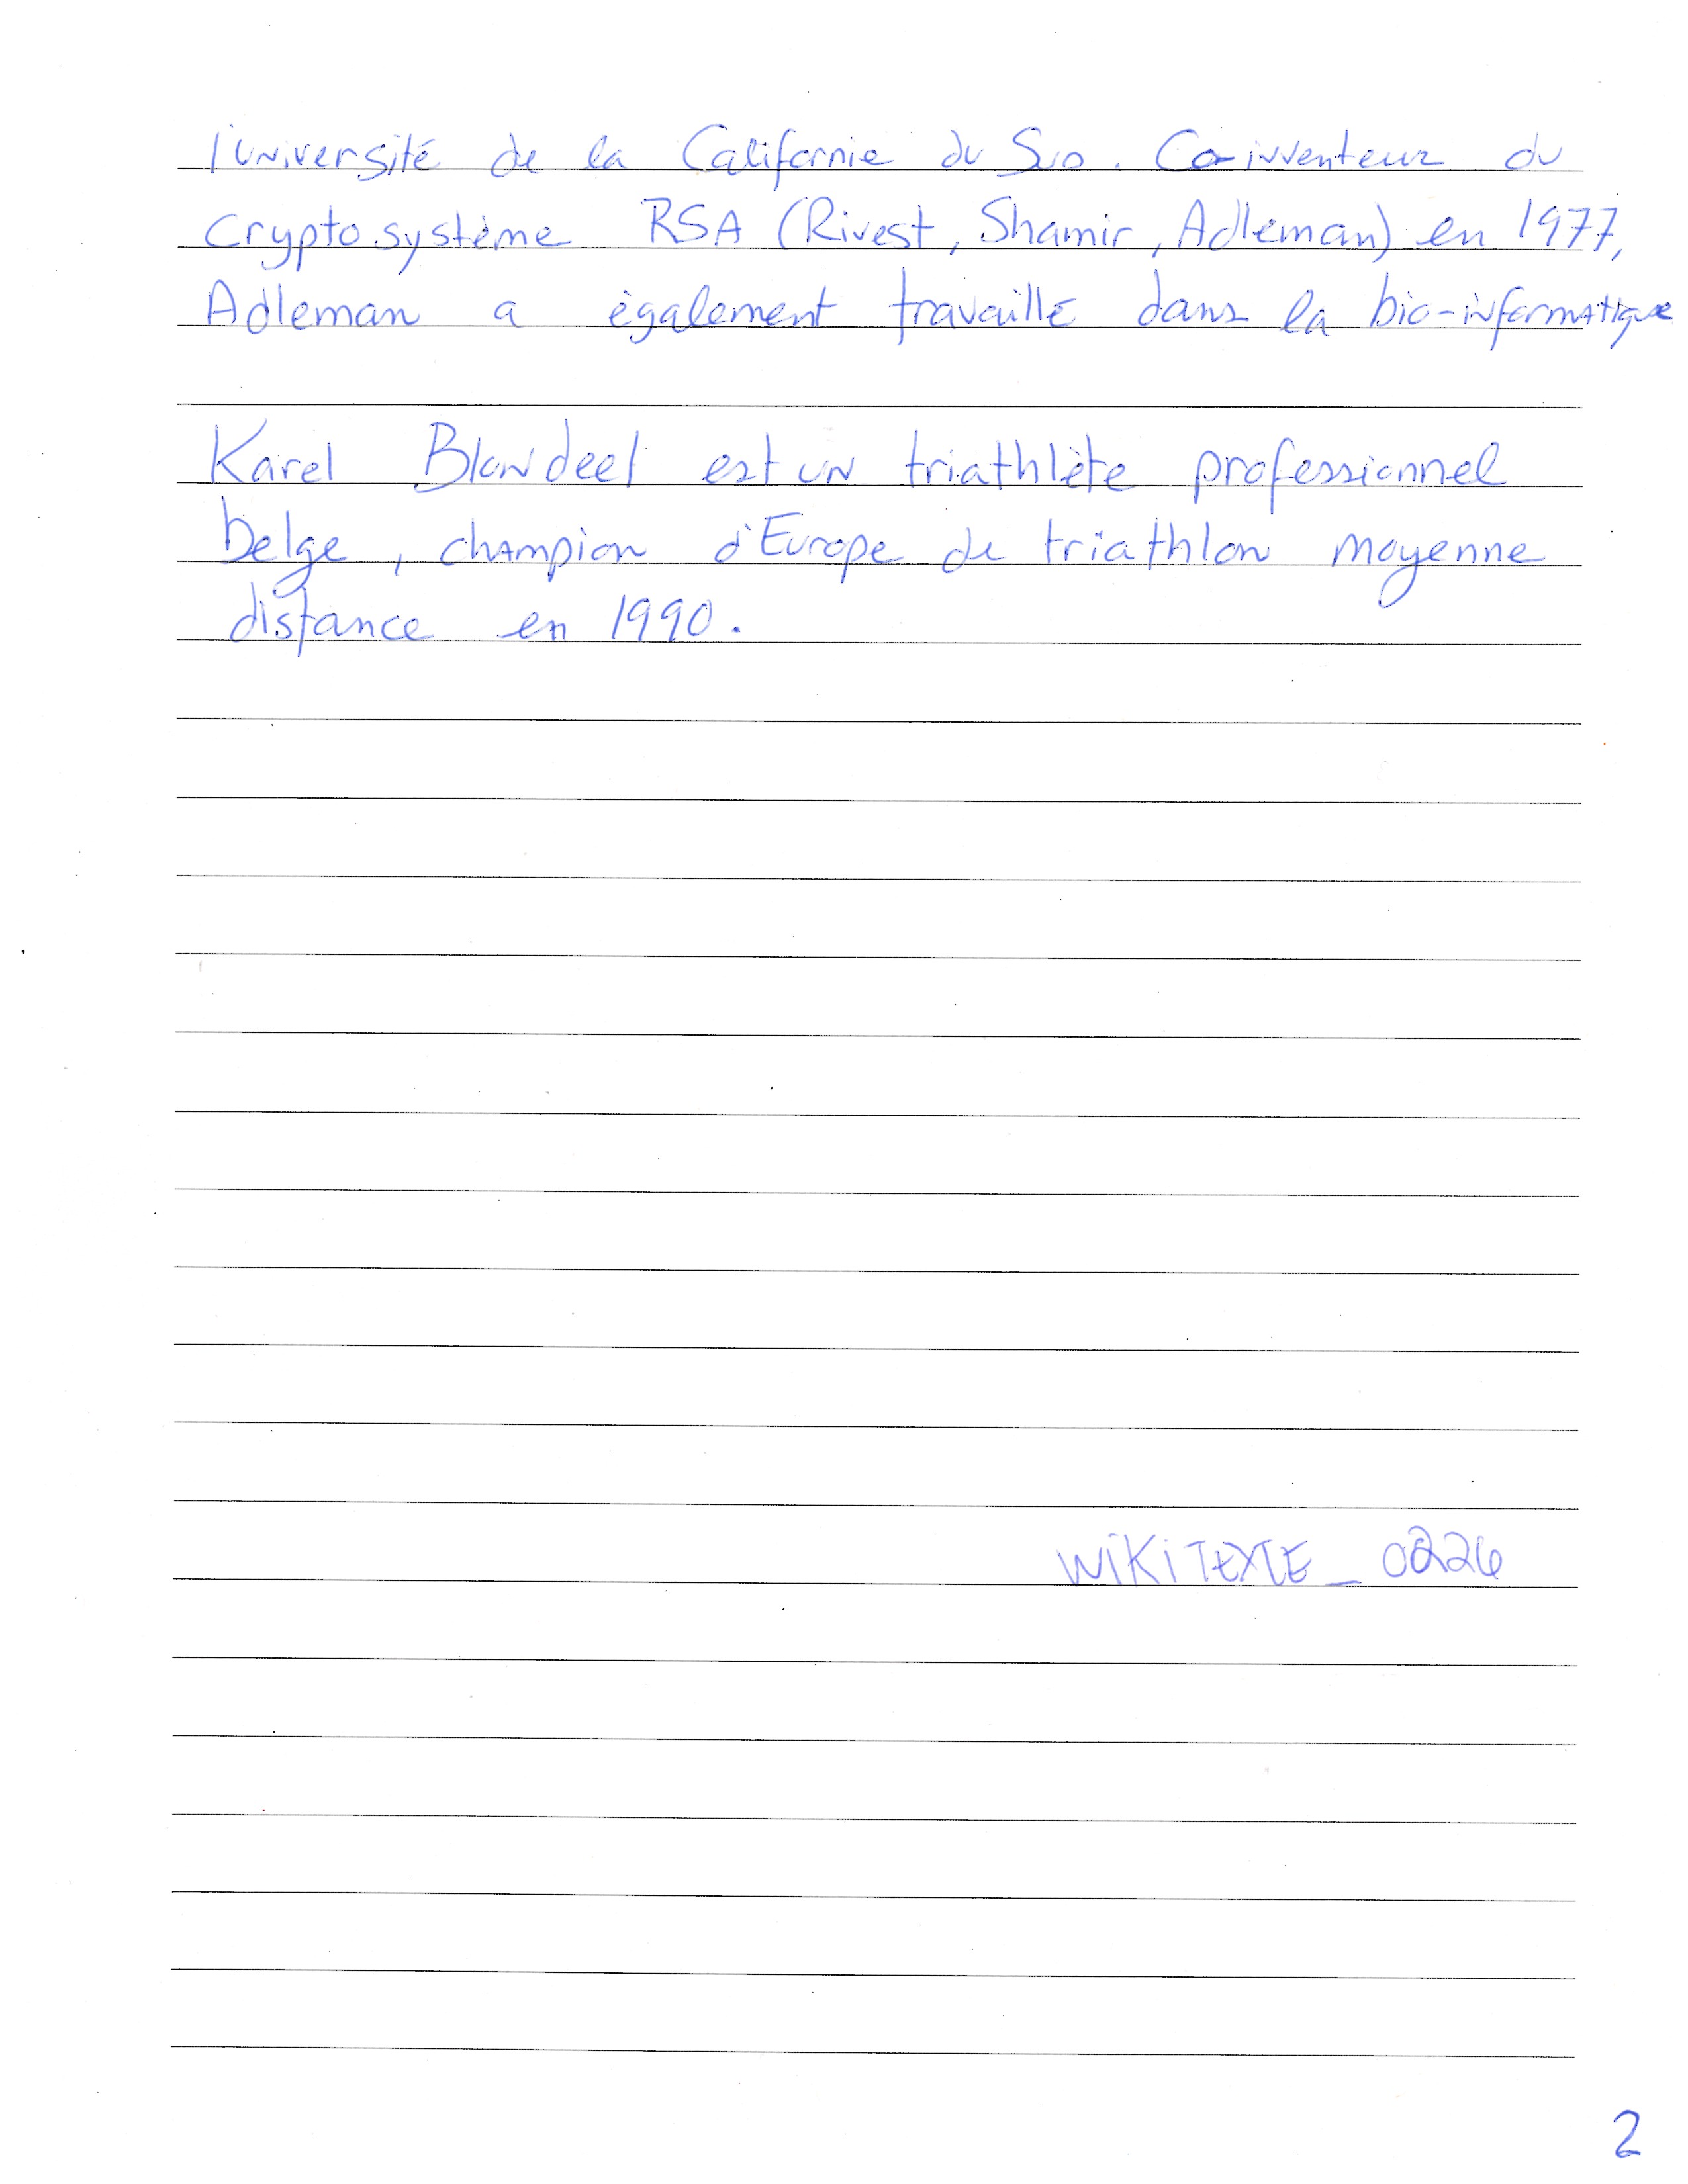 l'université de la Californie du Sud. Co-inventeur du
cryptosystème RSA (Rivest, Shamir, Adleman) en 1977,
Adleman a également travaillé dans la bio-informatique
Karel Blondeel est un triathlète professionnel
belge, champion d'Europe de triathlon moyenne
distance en 1990.
WiKiTEXTE_0226
2